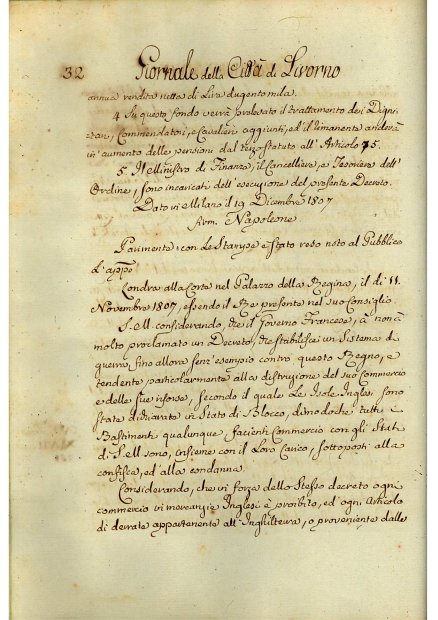 32 Giornale della Città di Livorno
annua rendita netta di Lire dugentomila.
4 Su questo fondo verrà prelevato il trattamento dei Digni-
tari, Commendatori, e Cavalieri aggiunti, ed il rimanente anderà
in aumento delle pensioni dal terzo statuto all' Articolo 75.
5. Il Ministro di Finanze, il Cancelliere, e Tesoriere dell'
Ordine, sono incaricati dell' esecuzione del presente Decreto.
Dato in Milano il 19 Dicembre 1807
Firm. Napoleone
Parimente con Le Stampe è stato reso noto al Pubblico
L'appo
Londra alla Corte nel Palazzo della Regina, il dì 11.
Novembre 1807, essendo il Re presente nel suo Consiglio.
S. M. considerando, che il Governo Francese, à non à
molto proclamato un Decreto, che stabilisce un Sistema di
guerra, fino allora senz' esempio contro questo Regno, e
tendente particolarmente alla distruzione del suo Commercio
e delle sue risorse, secondo il quale Le Isole Inglesi sono
state dichiarate in Stato di Blocco, dimodochè tutti i
Bastimenti qualunque facienti Commercio con gli Stati
di S. M. sono, insieme con il Loro Carico, sottoposti alla
confisca, ed alla condanna.
Considerando, che in forza dello stesso decreto ogni
commercio in mercanzie Inglesi è proibito, ed ogni Articolo
di derrate appartenente all' Inghilterra, o proveniente dalle